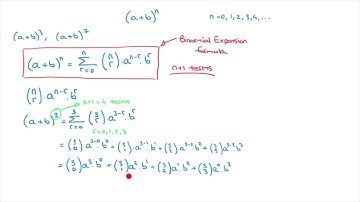 (a+b)ⁿ n=0,1,2,3,4,...
(a+b)³, (a+b)⁷
(a+b)ⁿ = Σ_{r=0}^{n} (n r)·aⁿ⁻ʳ·bʳ
Binomial Expansion
formula
n+1 terms
(n r)·aⁿ⁻ʳ·bʳ
3+1=4 terms
(a+b)³ = Σ_{r=0}^{3} (3 r)·a³⁻ʳ·bʳ
r=0,1,2,3
= (3 0)·a³⁻⁰·b⁰ + (3 1)·a³⁻¹·b¹ + (3 2)·a³⁻²·b² + (3 3)·a³⁻³·b³
= (3 0)·a³·b⁰ + (3 1)·a²·b¹ + (3 2)·a¹·b² + (3 3)·a⁰·b³